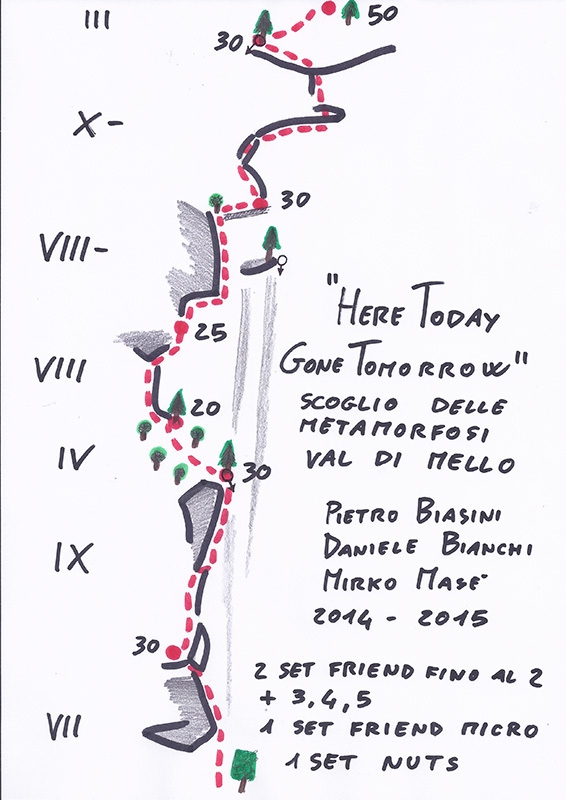 III
50
30
X-
30
VIII-
25
VIII
20
IV
30
IX
30
VII
"HERE TODAY
GONE TOMORROW"
SCOGLIO DELLE
METAMORFOSI
VAL DI MELLO
PIETRO BIASINI
DANIELE BIANCHI
MIRKO MASE'
2014 - 2015
2 SET FRIEND FINO AL 2
+ 3,4,5
1 SET FRIEND MICRO
1 SET NUTS